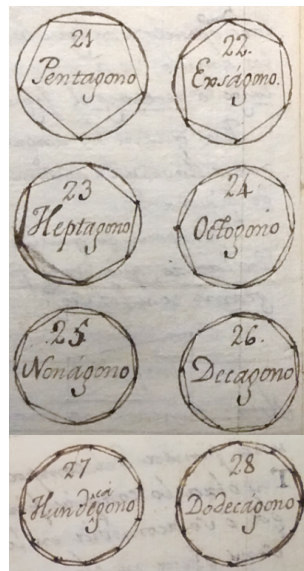 21
Pentagono
22.
Exságono.
23
Heptagono
24
Octogono
25
Nonágono
26.
Decagono
27
Hundecágono
28
Dodecágono